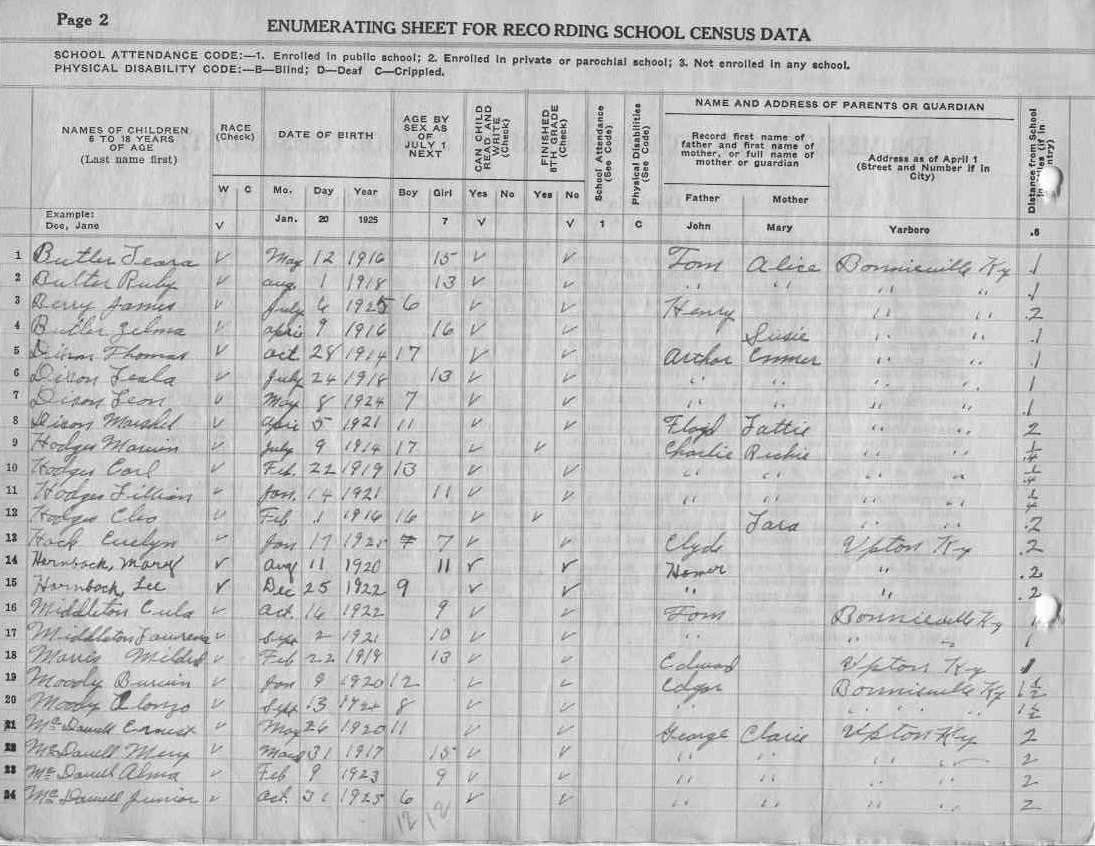 Page 2
ENUMERATING SHEET FOR RECORDING SCHOOL CENSUS DATA
SCHOOL ATTENDANCE CODE:—1. Enrolled in public school; 2. Enrolled in private or parochial school; 3. Not enrolled in any school.
PHYSICAL DISABILITY CODE:—B—Blind; D—Deaf C—Crippled.
NAMES OF CHILDREN 6 TO 18 YEARS OF AGE (Last name first) RACE (Check) DATE OF BIRTH AGE BY SEX AS OF JULY 1 NEXT CAN CHILD READ AND WRITE (Check) FINISHED 8TH GRADE (Check) School Attendance (See Code) Physical Disabilities (See Code) NAME AND ADDRESS OF PARENTS OR GUARDIAN Distance from School
Record first name of father and first name of mother, or full name of mother or guardian Address as of April 1 (Street and Number if in City)
W C Mo. Day Year Boy Girl Yes No Yes No Father Mother
Example: Doe, Jane V Jan. 20 1925 7 V V 1 C John Mary Yarboro .8
1 Butler V May 12 1916 15 V V Tom Alice Bonnieville Ky .1
2 Butler Ruby V aug 1 1918 13 V V " " " " .1
3 Berry James V July 6 1925 6 V V Henry " " .2
4 Butler Zelma V april 9 1916 16 V V Susie " " .1
5 Dixon Thomas V Oct 28 1914 17 V V Arthor Emmer " " .1
6 Dixon V July 24 1918 13 V V " " " " 1
7 Dixon Leon V May 8 1924 7 V V " " " " .1
8 Dixon Marshel V april 5 1921 11 V V Floyd Lattie " " 2
9 Hodges Marvin V July 9 1914 17 V V Charlie Richie " " 1/4
10 Hodges Earl V Feb. 22 1919 13 V V " " " " 1/4
11 Hodges Lillian V Jan. 14 1921 11 V V " " " " 1/4
12 Hodges Cleo V Feb 1 1916 16 V V " " .2
13 Hack Evelyn V Jan 17 1925 7 7 V V Clyde Upton Ky .2
14 Hornback, V aug 11 1920 11 V V Homer " .2
15 Hornback, Lee V Dec 25 1922 9 V V " " .2
16 Middleton Eula V Oct. 16 1922 9 V V Tom Bonnieville Ky
17 Middleton V Sept 2 1921 10 V V " " " 1
18 Morris Mildred V Feb 22 1918 13 V V Edward Upton Ky 1
19 Moody V Jan 9 1920 12 V V Edgar Bonnieville Ky 1 1/2
20 Moody Alonzo V Sept 13 8 V V " " " " 1 1/2
21 McDowell Ernest V May 26 1920 11 V V George Clarie Upton Ky 2
22 McDowell V 31 1917 15 V V " " " " 2
23 McDowell Alma V Feb 9 1923 9 V V " " " " 2
24 McDowell Junior V Oct. 31 1925 6 V V " " " " 2
12 12